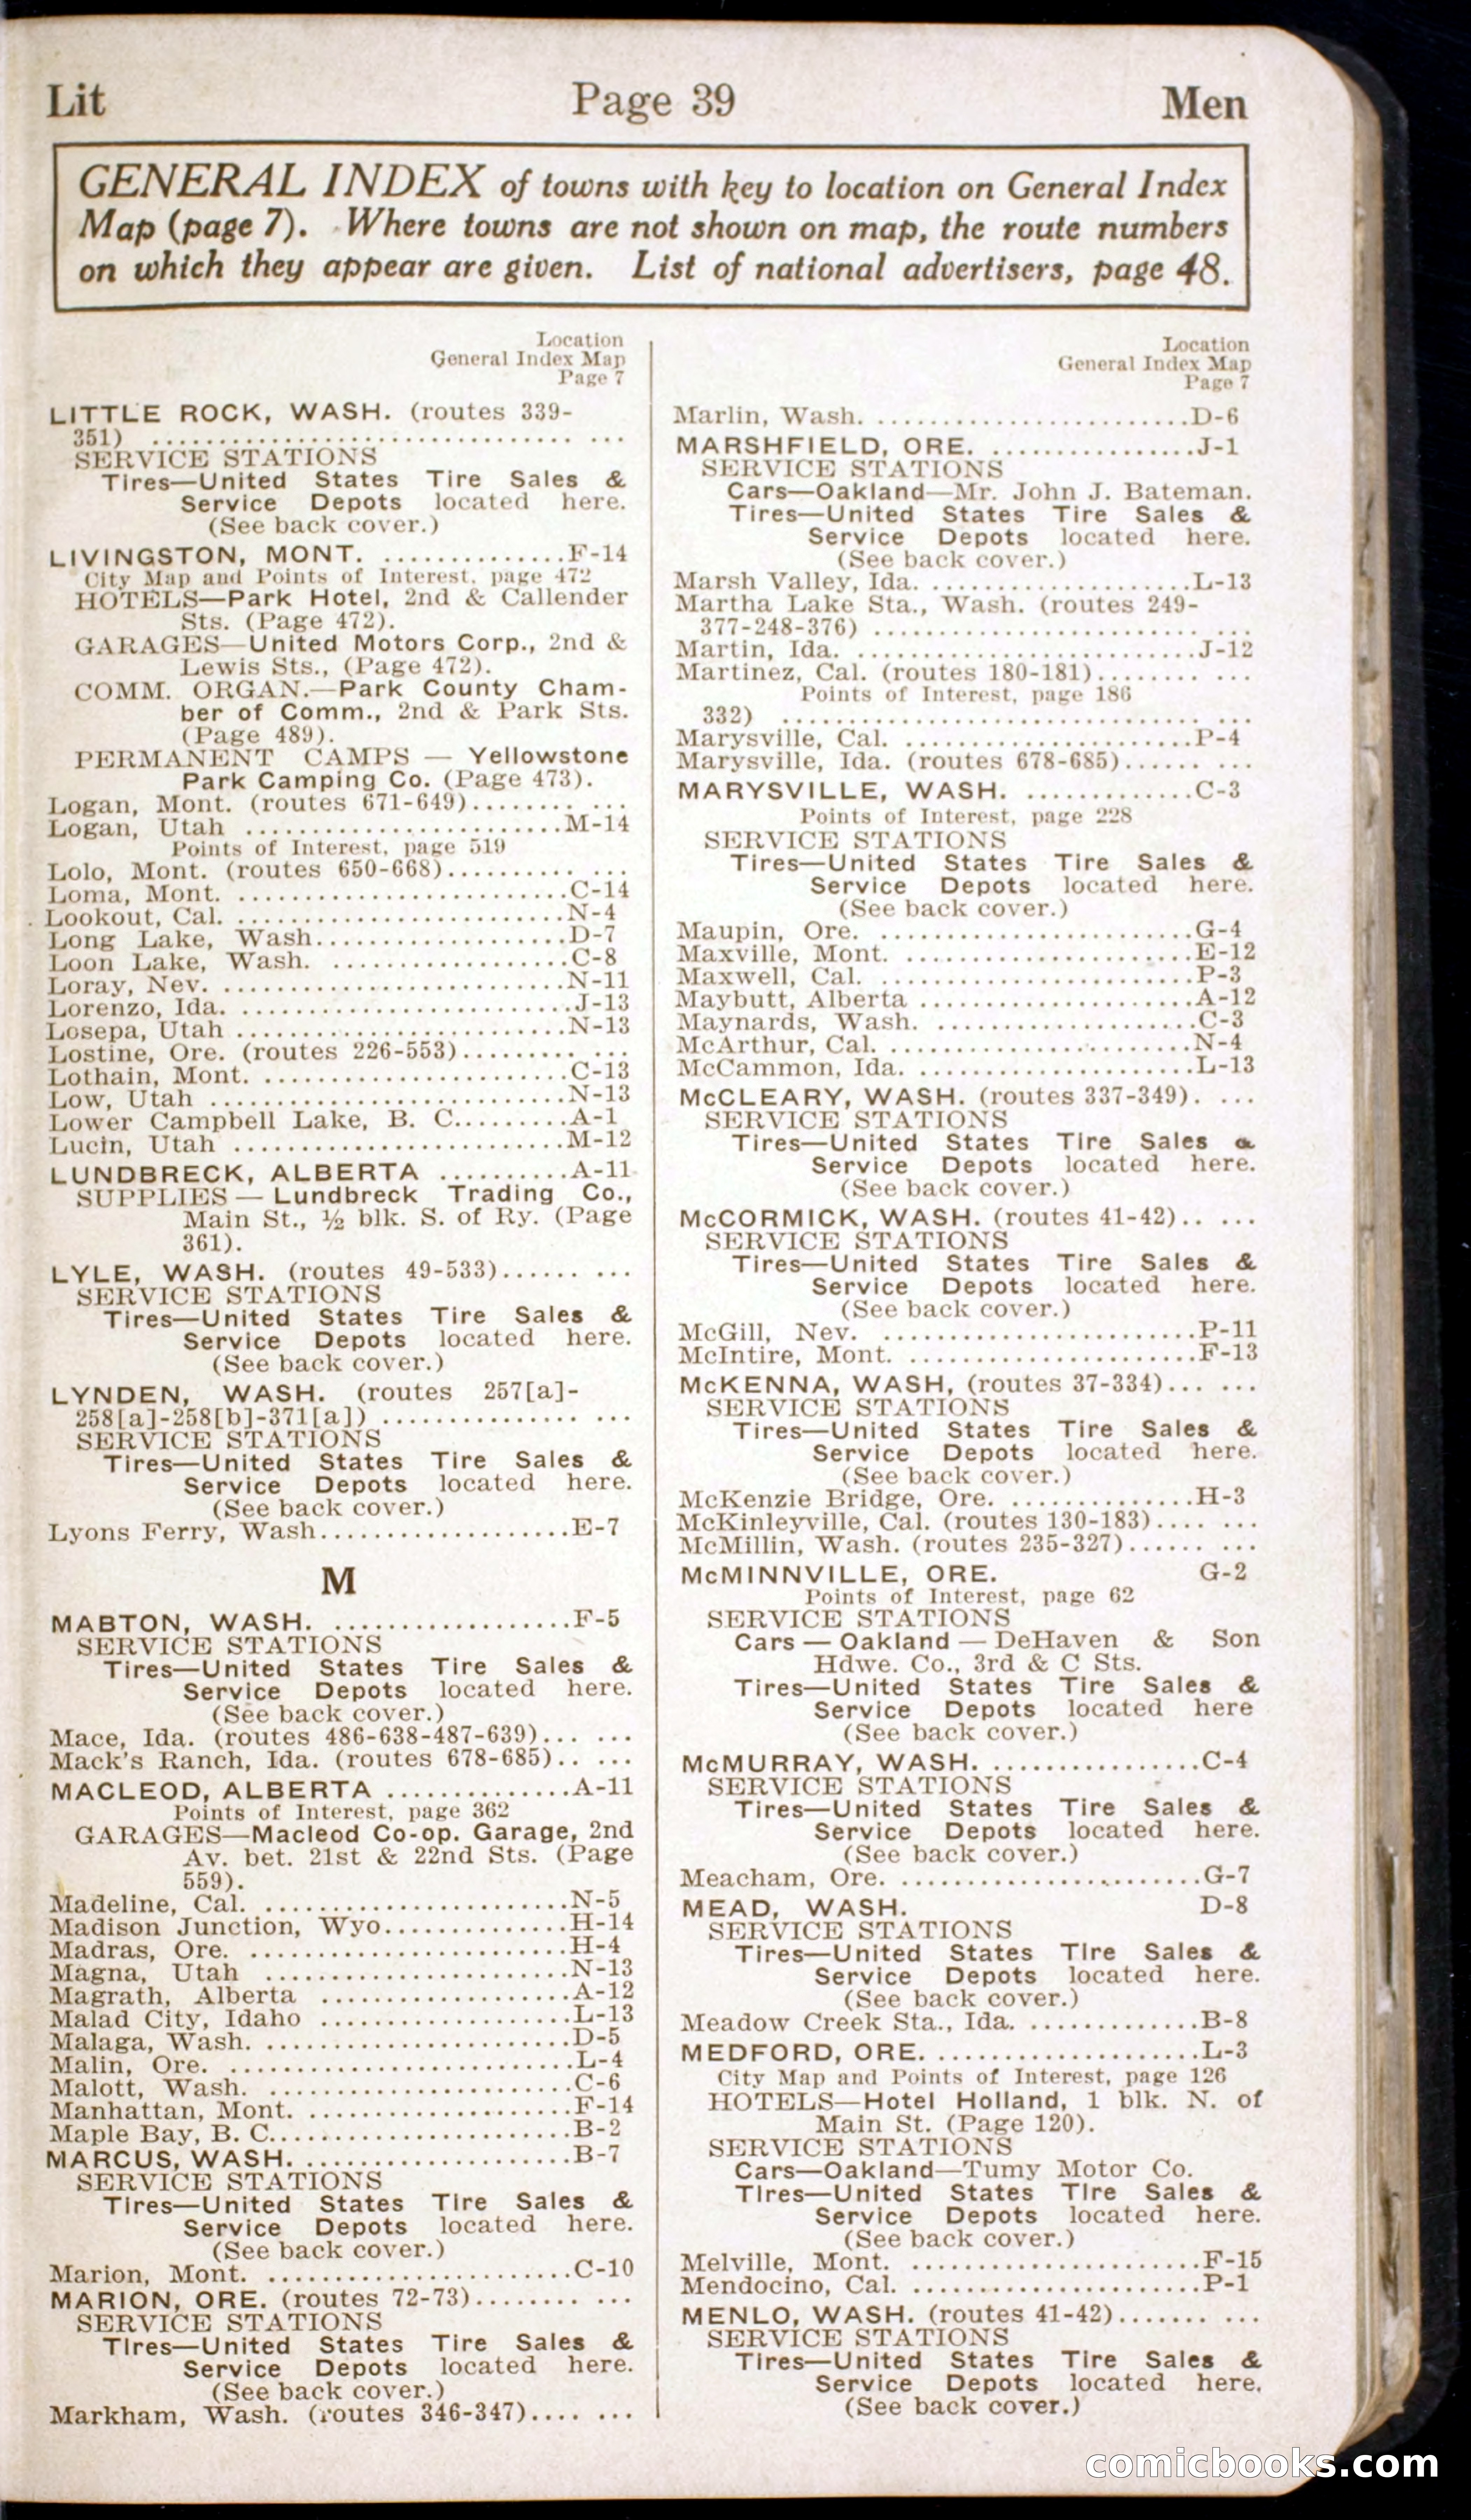 Lit Page 39 Men
GENERAL INDEX of towns with key to location on General Index
Map (page 7). Where towns are not shown on map, the route numbers
on which they appear are given. List of national advertisers, page 48.
Location
General Index Map
Page 7
LITTLE ROCK, WASH. (routes 339-
351) ................................ ...
SERVICE STATIONS
Tires—United States Tire Sales &
Service Depots located here.
(See back cover.)
LIVINGSTON, MONT. ..............F-14
City Map and Points of Interest, page 472
HOTELS—Park Hotel, 2nd & Callender
Sts. (Page 472).
GARAGES—United Motors Corp., 2nd &
Lewis Sts., (Page 472).
COMM. ORGAN.—Park County Cham-
ber of Comm., 2nd & Park Sts.
(Page 489).
PERMANENT CAMPS — Yellowstone
Park Camping Co. (Page 473).
Logan, Mont. (routes 671-649)........ ...
Logan, Utah ........................M-14
Points of Interest, page 519
Lolo, Mont. (routes 650-668).......... ...
Loma, Mont. .........................C-14
Lookout, Cal. .........................N-4
Long Lake, Wash...................D-7
Loon Lake, Wash. ..................C-8
Loray, Nev. ..........................N-11
Lorenzo, Ida. .........................J-13
Losepa, Utah .........................N-13
Lostine, Ore. (routes 226-553)......... ...
Lothain, Mont. .......................C-13
Low, Utah ...........................N-13
Lower Campbell Lake, B. C.........A-1
Lucin, Utah .........................M-12
LUNDBRECK, ALBERTA ..........A-11
SUPPLIES — Lundbreck Trading Co.,
Main St., ½ blk. S. of Ry. (Page
361).
LYLE, WASH. (routes 49-533)...... ...
SERVICE STATIONS
Tires—United States Tire Sales &
Service Depots located here.
(See back cover.)
LYNDEN, WASH. (routes 257[a]-
258[a]-258[b]-371[a]) ............... ...
SERVICE STATIONS
Tires—United States Tire Sales &
Service Depots located here.
(See back cover.)
Lyons Ferry, Wash...................E-7
M
MABTON, WASH. ..................F-5
SERVICE STATIONS
Tires—United States Tire Sales &
Service Depots located here.
(See back cover.)
Mace, Ida. (routes 486-638-487-639)... ...
Mack's Ranch, Ida. (routes 678-685).. ...
MACLEOD, ALBERTA ..............A-11
Points of Interest, page 362
GARAGES—Macleod Co-op. Garage, 2nd
Av. bet. 21st & 22nd Sts. (Page
559).
Madeline, Cal. .......................N-5
Madison Junction, Wyo..............H-14
Madras, Ore. ........................H-4
Magna, Utah .......................N-13
Magrath, Alberta ...................A-12
Malad City, Idaho ...................L-13
Malaga, Wash. .......................D-5
Malin, Ore. ..........................L-4
Malott, Wash. .......................C-6
Manhattan, Mont. ....................F-14
Maple Bay, B. C.......................B-2
MARCUS, WASH. ....................B-7
SERVICE STATIONS
Tires—United States Tire Sales &
Service Depots located here.
(See back cover.)
Marion, Mont. .......................C-10
MARION, ORE. (routes 72-73)........ ...
SERVICE STATIONS
Tires—United States Tire Sales &
Service Depots located here.
(See back cover.)
Markham, Wash. (routes 346-347).... ...
Location
General Index Map
Page 7
Marlin, Wash. ........................D-6
MARSHFIELD, ORE. ................J-1
SERVICE STATIONS
Cars—Oakland—Mr. John J. Bateman.
Tires—United States Tire Sales &
Service Depots located here.
(See back cover.)
Marsh Valley, Ida. ....................L-13
Martha Lake Sta., Wash. (routes 249-
377-248-376) ......................... ...
Martin, Ida. ..........................J-12
Martinez, Cal. (routes 180-181)........ ...
Points of Interest, page 186
332) ................................ ...
Marysville, Cal. ......................P-4
Marysville, Ida. (routes 678-685)...... ...
MARYSVILLE, WASH. .............C-3
Points of Interest, page 228
SERVICE STATIONS
Tires—United States Tire Sales &
Service Depots located here.
(See back cover.)
Maupin, Ore. ........................G-4
Maxville, Mont. ......................E-12
Maxwell, Cal. ........................P-3
Maybutt, Alberta .....................A-12
Maynards, Wash. ....................C-3
McArthur, Cal. .......................N-4
McCammon, Ida. .....................L-13
McCLEARY, WASH. (routes 337-349). ...
SERVICE STATIONS
Tires—United States Tire Sales &
Service Depots located here.
(See back cover.)
McCORMICK, WASH. (routes 41-42).. ...
SERVICE STATIONS
Tires—United States Tire Sales &
Service Depots located here.
(See back cover.)
McGill, Nev. ........................P-11
McIntire, Mont. ......................F-13
McKENNA, WASH, (routes 37-334)... ...
SERVICE STATIONS
Tires—United States Tire Sales &
Service Depots located here.
(See back cover.)
McKenzie Bridge, Ore. ..............H-3
McKinleyville, Cal. (routes 130-183).... ...
McMillin, Wash. (routes 235-327)...... ...
McMINNVILLE, ORE. G-2
Points of Interest, page 62
SERVICE STATIONS
Cars — Oakland — DeHaven & Son
Hdwe. Co., 3rd & C Sts.
Tires—United States Tire Sales &
Service Depots located here
(See back cover.)
McMURRAY, WASH. ................C-4
SERVICE STATIONS
Tires—United States Tire Sales &
Service Depots located here.
(See back cover.)
Meacham, Ore. .......................G-7
MEAD, WASH. D-8
SERVICE STATIONS
Tires—United States Tire Sales &
Service Depots located here.
(See back cover.)
Meadow Creek Sta., Ida. .............B-8
MEDFORD, ORE. ....................L-3
City Map and Points of Interest, page 126
HOTELS—Hotel Holland, 1 blk. N. of
Main St. (Page 120).
SERVICE STATIONS
Cars—Oakland—Tumy Motor Co.
Tires—United States Tire Sales &
Service Depots located here.
(See back cover.)
Melville, Mont. ......................F-15
Mendocino, Cal. ......................P-1
MENLO, WASH. (routes 41-42)....... ...
SERVICE STATIONS
Tires—United States Tire Sales &
Service Depots located here.
(See back cover.)
comicbooks.com